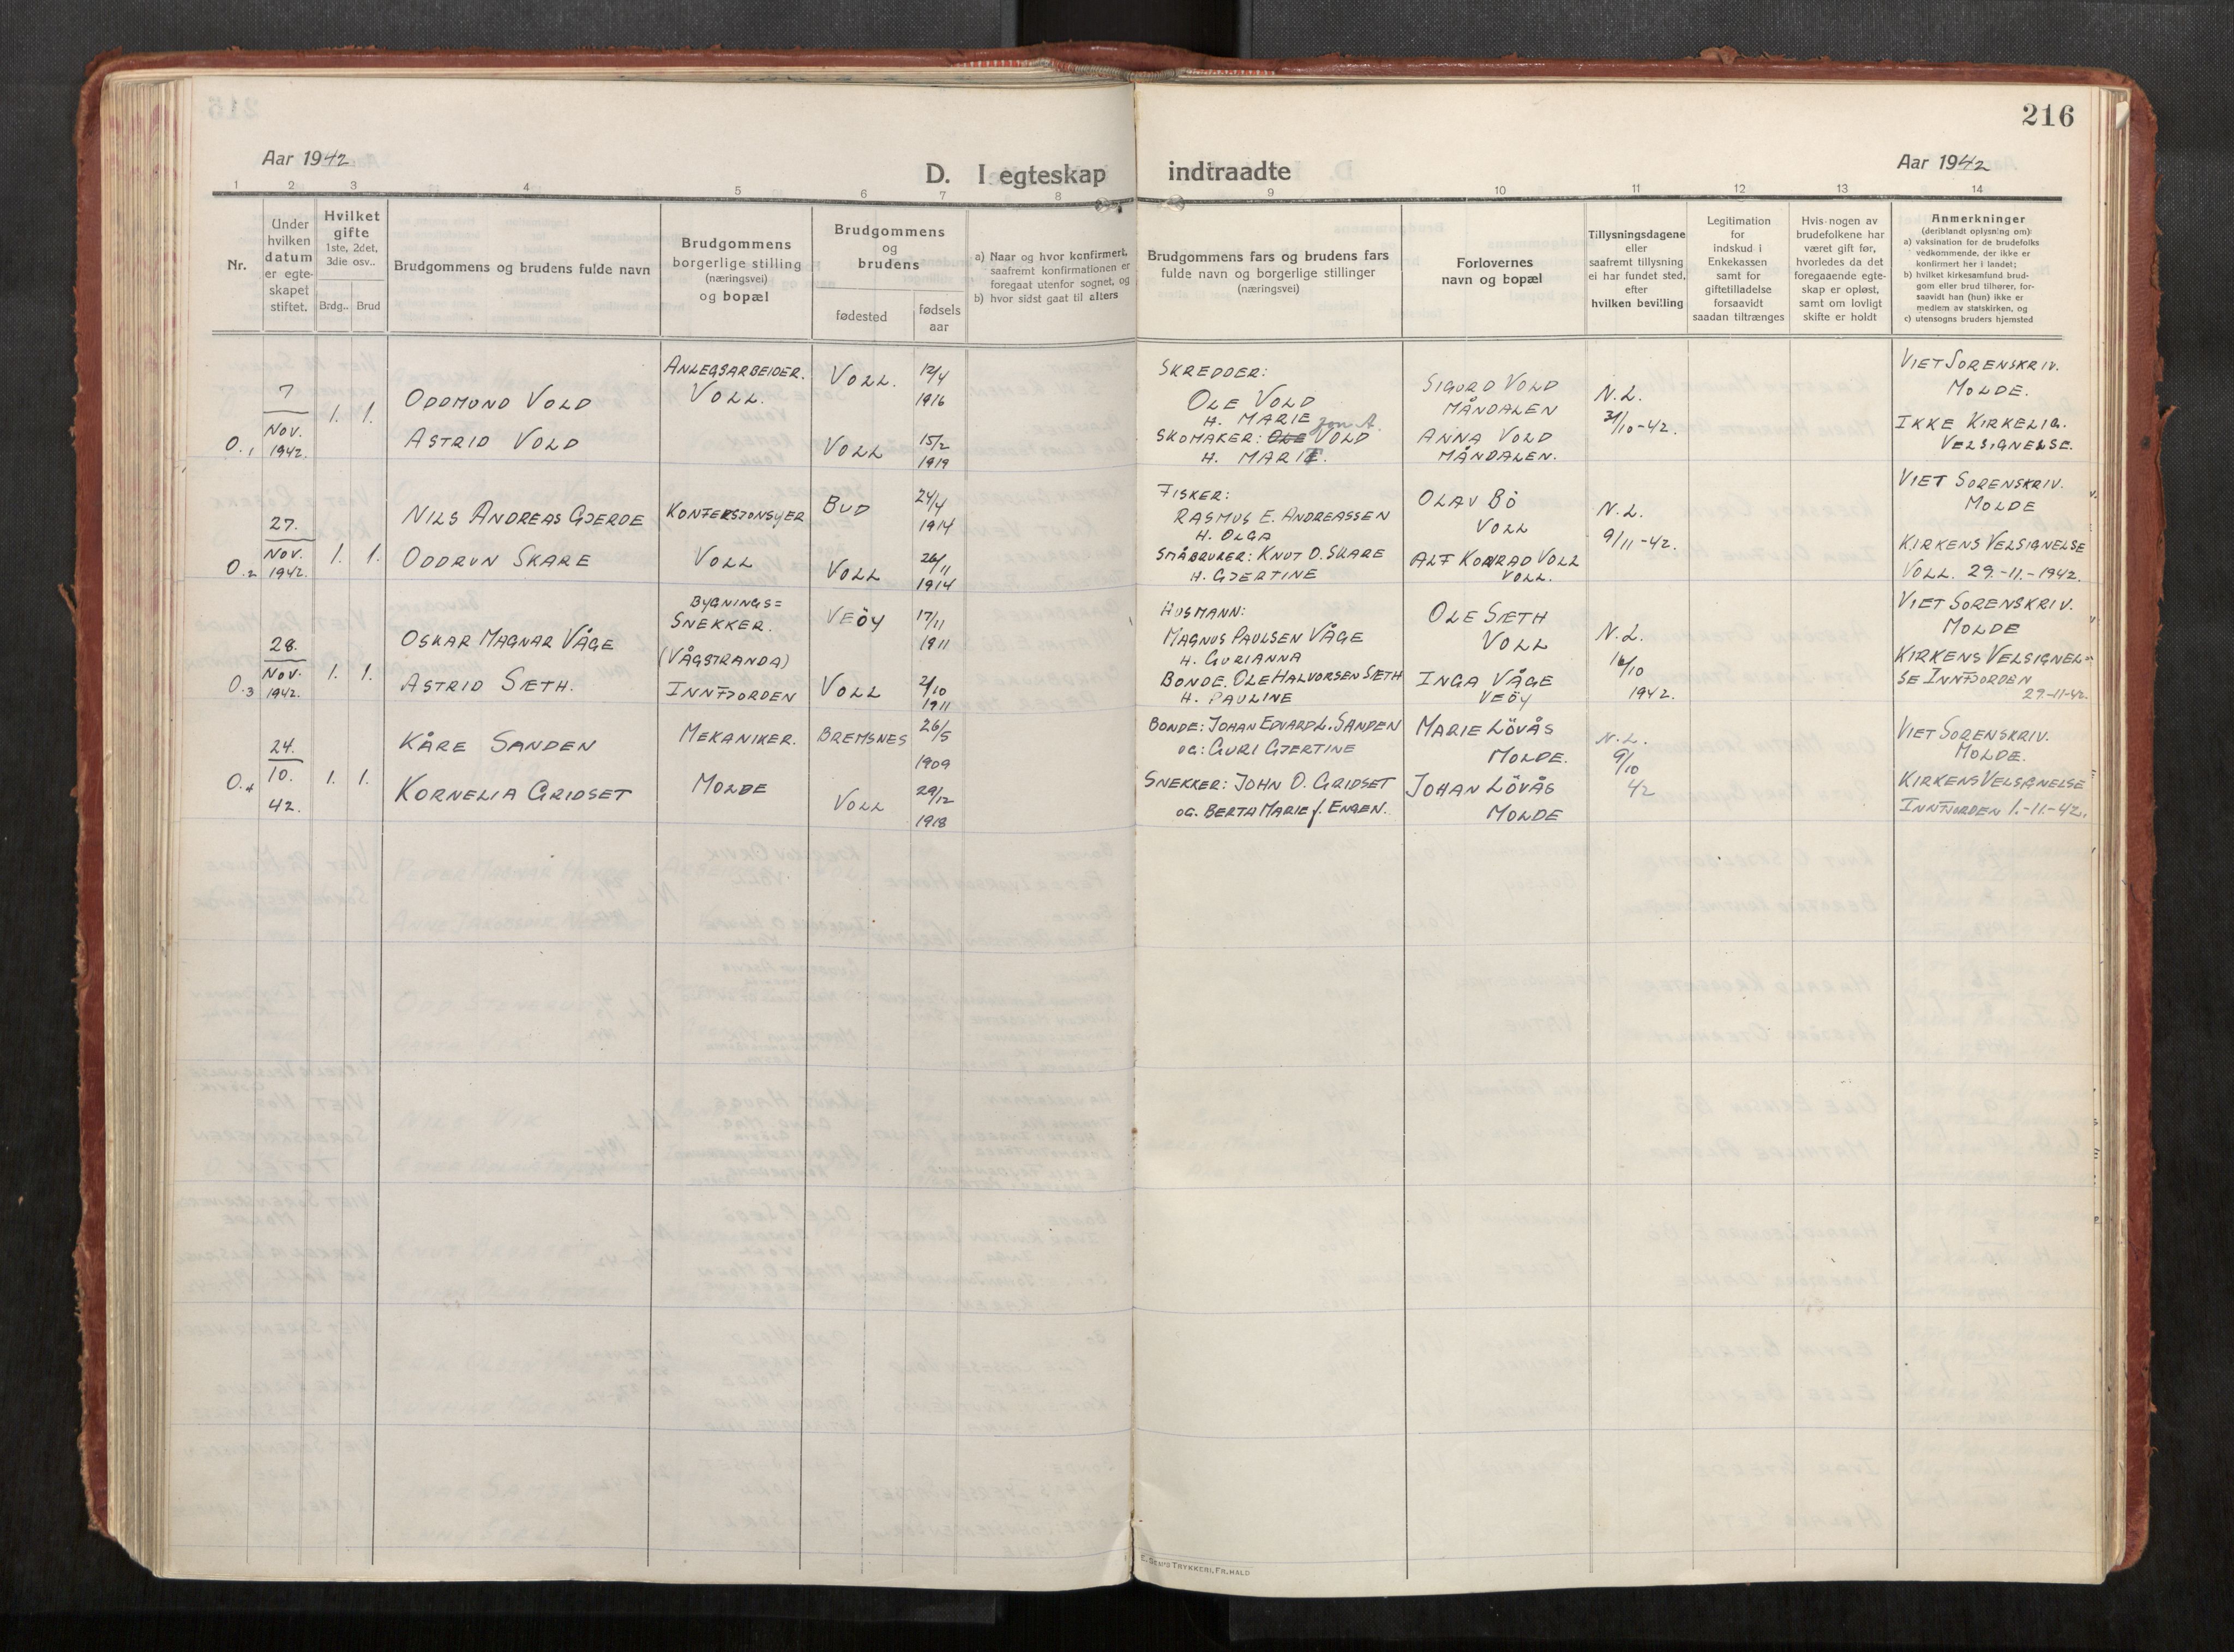 216
Aar 1942
Aar 1942
D. I egteskap indtraadte
1 2 3 4 5 6 7 8 9 10 11 12 13 14
Nr.
Under
hvilken
datum
er egte-
skapet
stiftet.
Hvilket
gifte
1ste, 2det,
3die osv..
Brdg.. Brud
Brudgommens og brudens fulde navn
Brudgommens
borgerlige stilling
(næringsvei)
og bopæl
Brudgommens
og
brudens
fødested
fødsels
aar
a) Naar og hvor konfirmert,
saafremt konfirmationen er
foregaat utenfor sognet, og
b) hvor sidst gaat til alters
Brudgommens fars og brudens fars
fulde navn og borgerlige stillinger
(næringsvei)
Forlovernes
navn og bopæl
Tillysningsdagene
eller
saafremt tillysning
ei har fundet sted,
efter
hvilken bevilling
Legitimation
for
indskud i
Enkekassen
samt for
giftetilladelse
forsaavidt
saadan tiltrænges
Hvis nogen av
brudefolkene har
været gift før,
hvorledes da det
foregaaende egte-
skap er opløst,
samt om lovligt
skifte er holdt
Anmerkninger
(deriblandt oplysning om):
a) vaksination for de brudefolks
vedkommende, der ikke er
konfirmert her i landet;
b) hvilket kirkesamfund brud-
gom eller brud tilhører, for-
saavidt han (hun) ikke er
medlem av statskirken, og
c) utensogns bruders hjemsted
O.1
7
Nov.
1942.
1. 1.
Oddmund Vold
Astrid Vold
Anlegsarbeider.
Voll.
Voll.
12/4
1916
Voll
15/2
1919
Skredder:
Ole Vold
H. Marie
Skomaker: Ole Jon A. Vold
H. Marie.
Sigurd Vold
Måndalen
Anna Vold
Måndalen.
N.L.
31/10-42.
Viet Sorenskriv.
Molde.
Ikke Kirkelig.
Velsignelse.
O.2
27.
Nov.
1942.
1. 1.
Nils Andreas Gjerde
Oddrun Skare
Konfeksjonsyer
Voll
Bud
24/4
1914
Voll
26/11
1914
Fisker:
Rasmus E. Andreassen
H. Olga
Småbruker: Knut O. Skare
H. Gjertine
Olav Bö
Voll
Alf Konrad Voll
Voll.
N.L.
9/11-42.
Viet Sorenskriv.
Molde
Kirkens Velsignelse
Voll. 29.-11.-1942.
O.3
28.
Nov.
1942.
1. 1.
Oskar Magnar Våge
Astrid Sæth.
Bygnings=
Snekker.
(Vågstranda)
Innfjorden
Veöy
17/11
1911
Voll
2/10
1911
Husmann:
Magnus Paulsen Våge
H. Gurianna
Bonde. Ole Halvorsen Sæth
H. Pauline
Ole Sæth
Voll
Inga Våge
Veöy
N.L.
16/10
1942.
Viet Sorenskriv.
Molde
Kirkens Velsignel=
se Innfjorden
29-11-42.
O.4
24.
10.
42.
1. 1.
Kåre Sanden
Kornelia Gridset
Mekaniker.
Molde
Bremsnes
26/5
1909
Voll
29/12
1918
Bonde: Johan Edvard L. Sanden
og: Guri Gjertine
Snekker: John O. Gridset
og. Berta Marie f. Engen.
Marie Lövås
Molde.
Johan Lövås
Molde
N.L.
9/10
42
Viet Sorenskriv.
Molde.
Kirkens Velsignelse
Innfjorden 1.-11.-42.
E. Sem's Trykkeri, Fr.hald